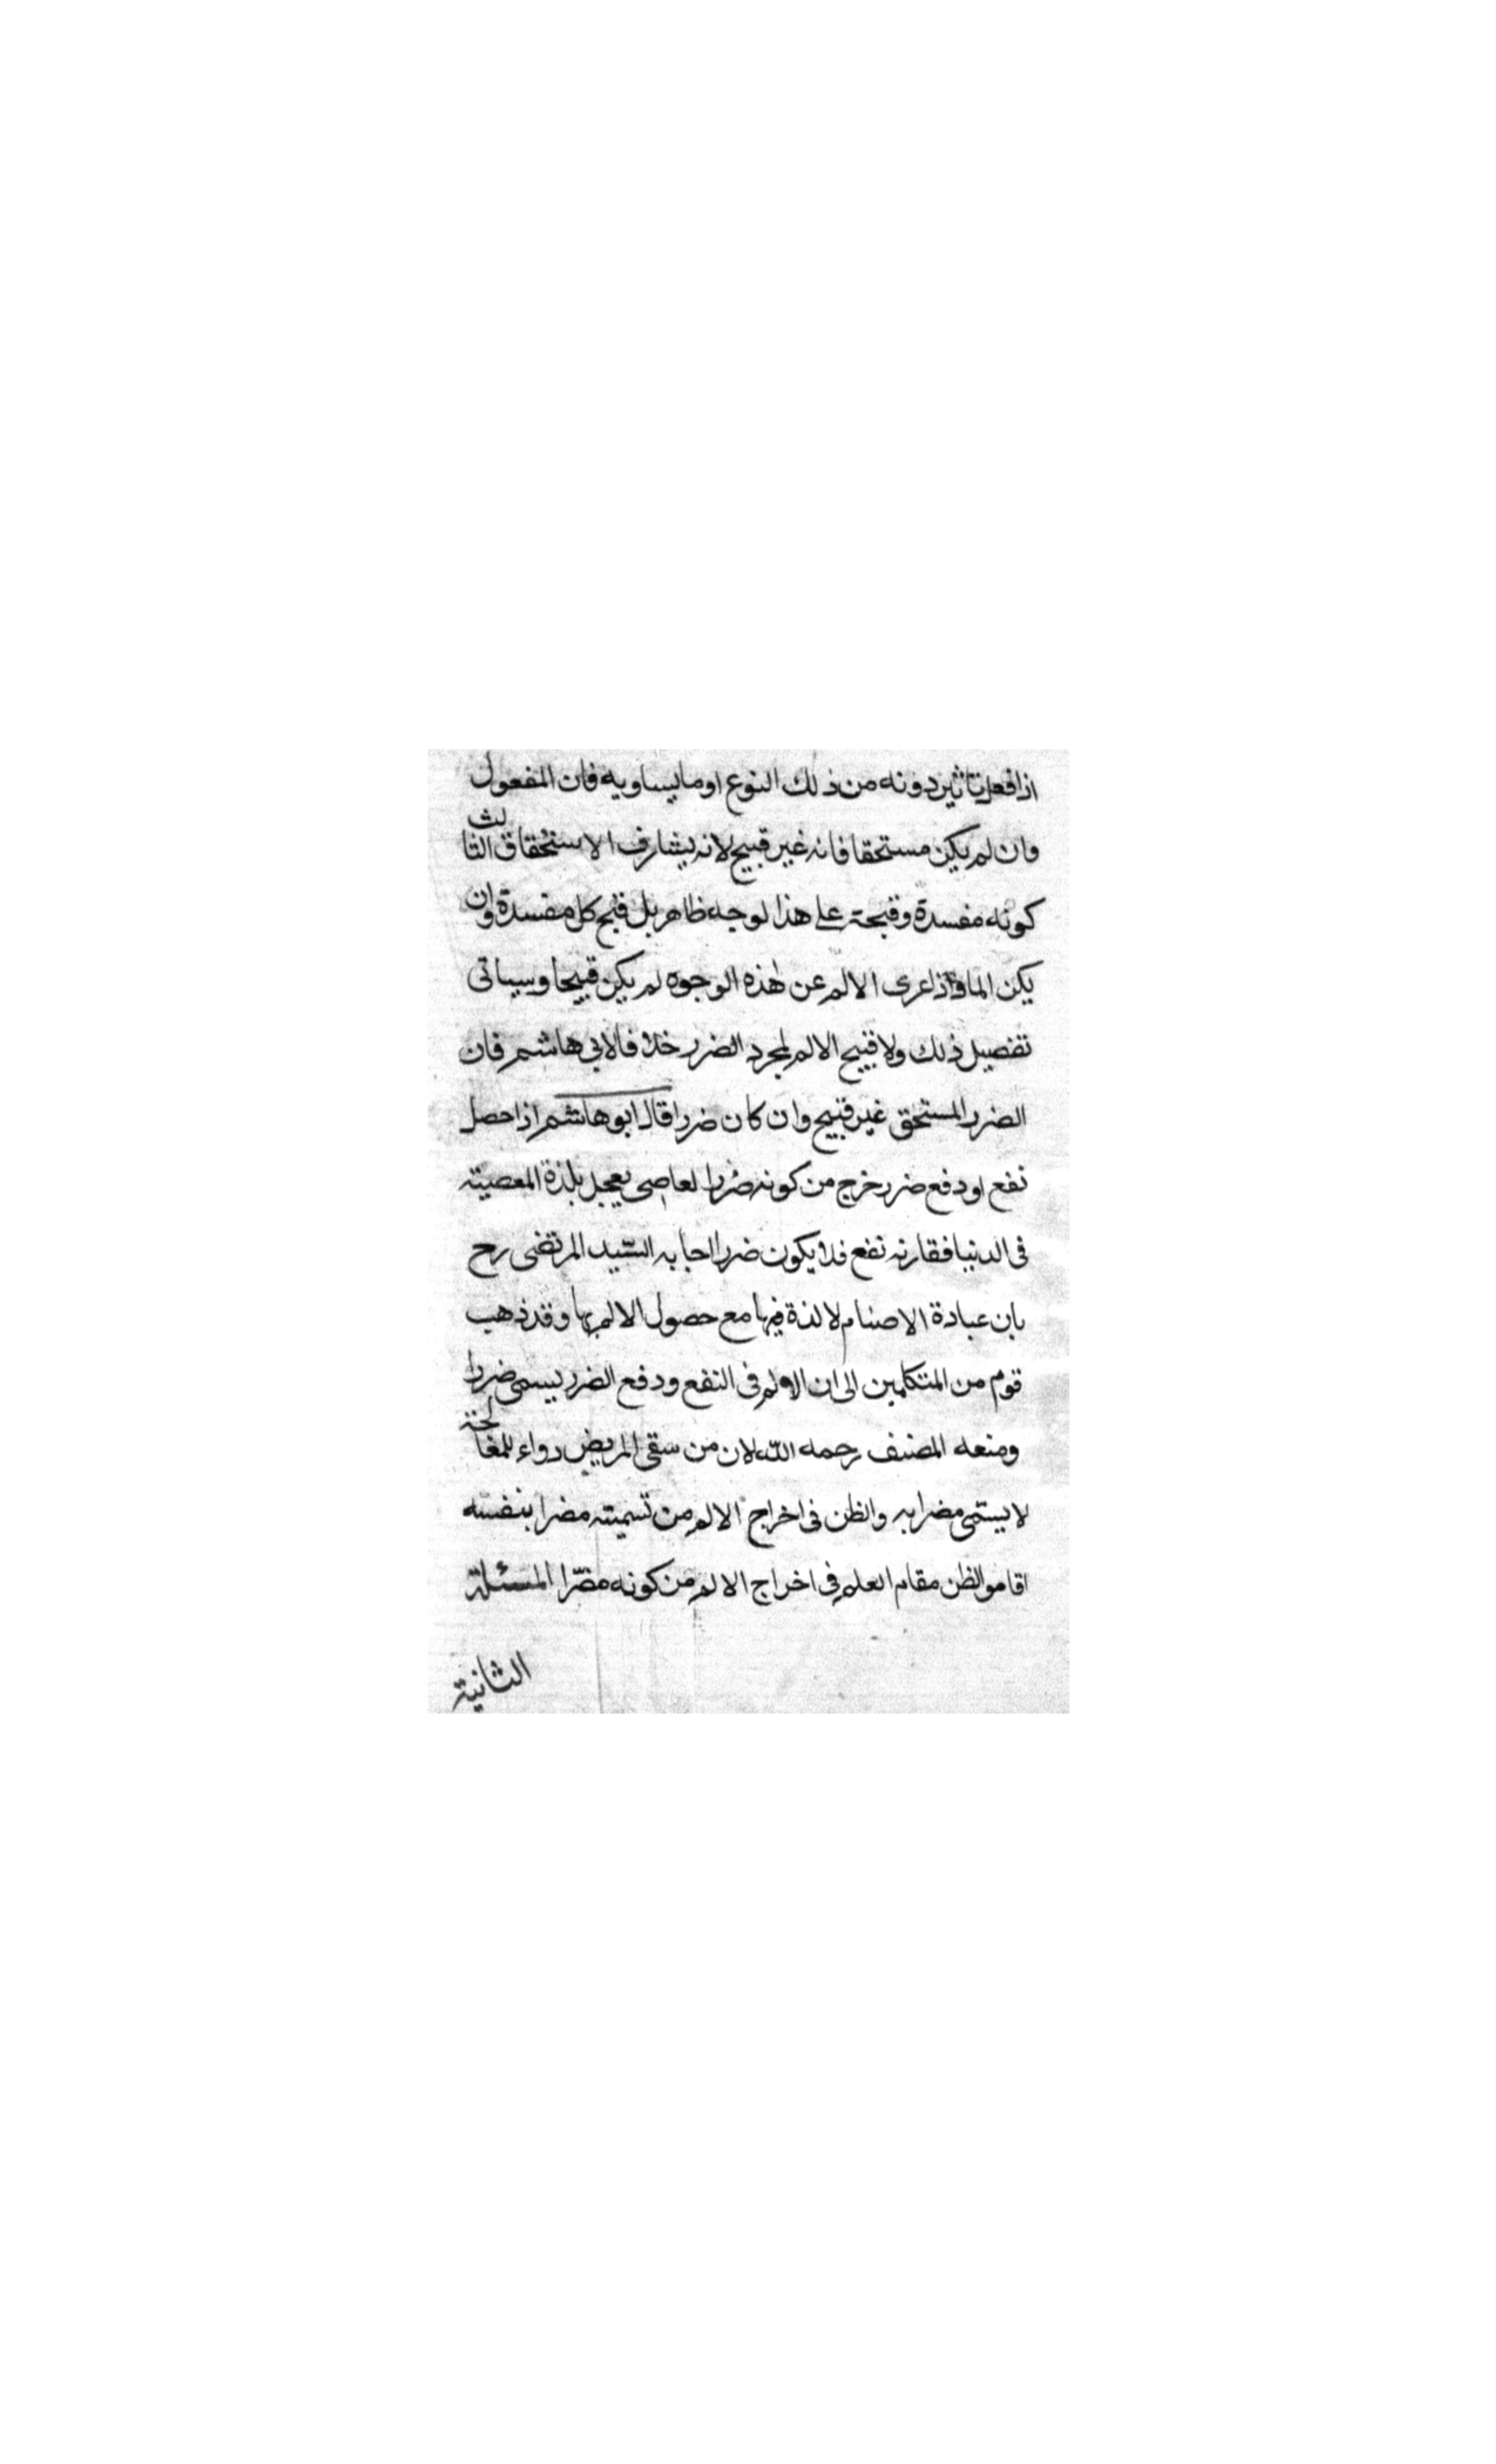 اذا فعل تاثير دونه من ذلك النوع اوما يساويه فان المفعول
وان لم يكن مستحقا فانه غير قبيح لانه يشارف الاستحقاق الثالث
كونه مفسدة وقبحته على هذا لوجه ظاهر بل قبح كل مفسدة وان
يكن الما واذا عرى الالم عن هذه الوجوه لم يكن قبيحا وسياتى
تفصيل ذلك ولا قبيح الالم لمجرد الضرر خلافا لابي هاشم فان
الضرر المستحق غير قبيح وان كان ضررا قال ابو هاشم اذا حصل
نفع او دفع ضرر خرج من كونه ضررا لعاصى يعجل بلذة المعصية
فى الدنيا فقارنه نفع فلا يكون ضررا اجابه السّيد المرتضى رح
بان عبادة الاصنام لا لذة فيها مع حصول الالم بها وقد ذهب
قوم من المتكلمين الى ان الالم فى النفع ودفع الضرر يسمى ضررا
ومنعه المصنف رحمه الله لان من سقى المريض دواء للمغالجة
لا يسمّى مضرا به والظن فى اخراج الالم من تسميته مضرا بنفسه
اقامو الظن مقام العلم فى اخراج الالم من كونه مضرّا المسئلة
الثانية